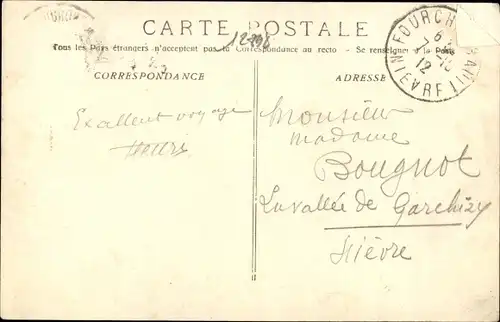 CARTE POSTALE
Tous les Pays étrangers n'acceptent pas la Correspondance au recto - Se renseigner à la Poste
CORRESPONDANCE
ADRESSE
FOURCH
7-10
12
NIEVRE
Exallent voyage
Henri
Monsieur
madame
Bougnot
La vallée de Garchizy
Nièvre